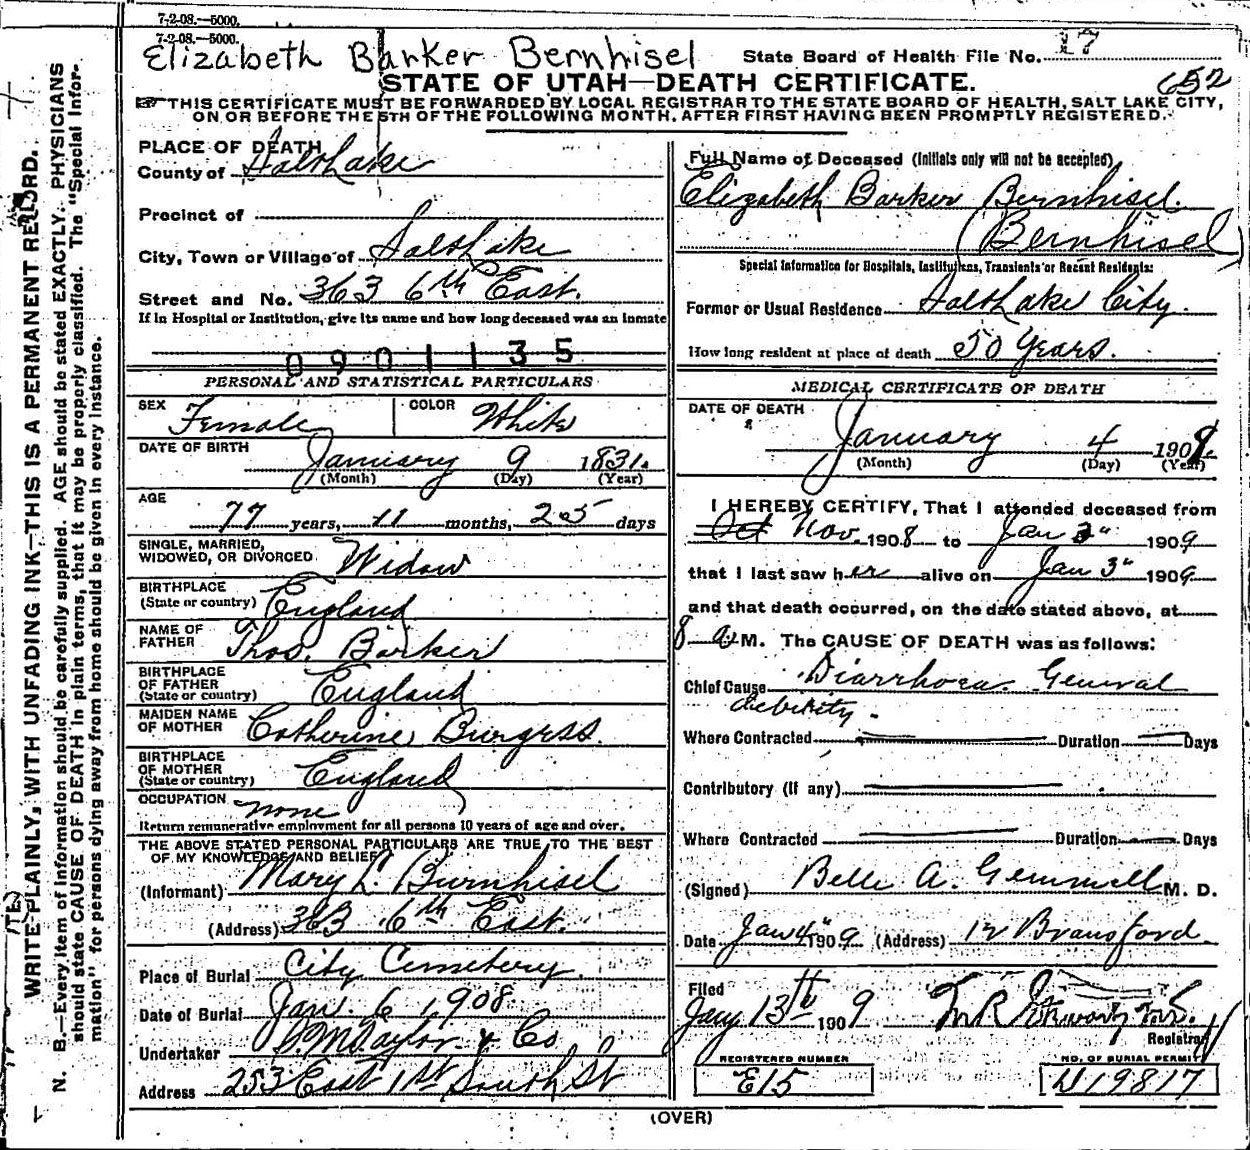 7-2-08.—5000.
7-2-08.—5000.
Elizabeth Barker Bernhisel
State Board of Health File No. 17
STATE OF UTAH—DEATH CERTIFICATE.
652
THIS CERTIFICATE MUST BE FORWARDED BY LOCAL REGISTRAR TO THE STATE BOARD OF HEALTH, SALT LAKE CITY,
ON OR BEFORE THE 5TH OF THE FOLLOWING MONTH, AFTER FIRST HAVING BEEN PROMPTLY REGISTERED.
WRITE PLAINLY, WITH UNFADING INK—THIS IS A PERMANENT RECORD.
N. B.—Every item of information should be carefully supplied. AGE should be stated EXACTLY. PHYSICIANS
should state CAUSE OF DEATH in plain terms, that it may be properly classified. The "Special Infor-
mation" for persons dying away from home should be given in every instance.
PLACE OF DEATH
County of Salt Lake
Precinct of
City, Town or Village of Salt Lake
Street and No. 363 6th East.
If in Hospital or Institution, give its name and how long deceased was an inmate
0901135
PERSONAL AND STATISTICAL PARTICULARS
SEX Female COLOR White
DATE OF BIRTH January 9 1831.
(Month) (Day) (Year)
AGE
77 years, 11 months, 25 days
SINGLE, MARRIED,
WIDOWED, OR DIVORCED Widow
BIRTHPLACE
(State or country) England
NAME OF
FATHER Thos. Barker
BIRTHPLACE
OF FATHER
(State or country) England
MAIDEN NAME
OF MOTHER Catherine Burgess.
BIRTHPLACE
OF MOTHER
(State or country) England
OCCUPATION none
Return remunerative employment for all persons 10 years of age and over.
THE ABOVE STATED PERSONAL PARTICULARS ARE TRUE TO THE BEST
OF MY KNOWLEDGE AND BELIEF
(Informant) Mary L. Burnhisel
(Address) 363 6th East.
Place of Burial City Cemetery.
Date of Burial Jan. 6, 1908
Undertaker S. M. Taylor & Co
Address 253 East 1st South St
Full Name of Deceased (Initials only will not be accepted)
Elizabeth Barker Bernhisel.
(Bernhisel)
Special Information for Hospitals, Institutions, Transients or Recent Residents:
Former or Usual Residence Salt Lake City.
How long resident at place of death 50 Years.
MEDICAL CERTIFICATE OF DEATH
DATE OF DEATH
January 4 1909.
(Month) (Day) (Year)
I HEREBY CERTIFY, That I attended deceased from
Oct Nov. 1908 to Jan 3" 1909
that I last saw her alive on Jan 3" 1909
and that death occurred, on the date stated above, at
8 a M. The CAUSE OF DEATH was as follows:
Chief Cause Diarrhoea. General
debility.
Where Contracted Duration Days
Contributory (if any)
Where Contracted Duration Days
(Signed) Belle A. Gemmell M. D.
Date Jan 4" 1909 (Address) 12 Bransford.
Filed
Jany 13th 1909
Registrar
REGISTERED NUMBER
E15
NO. OF BURIAL PERMIT
(OVER)